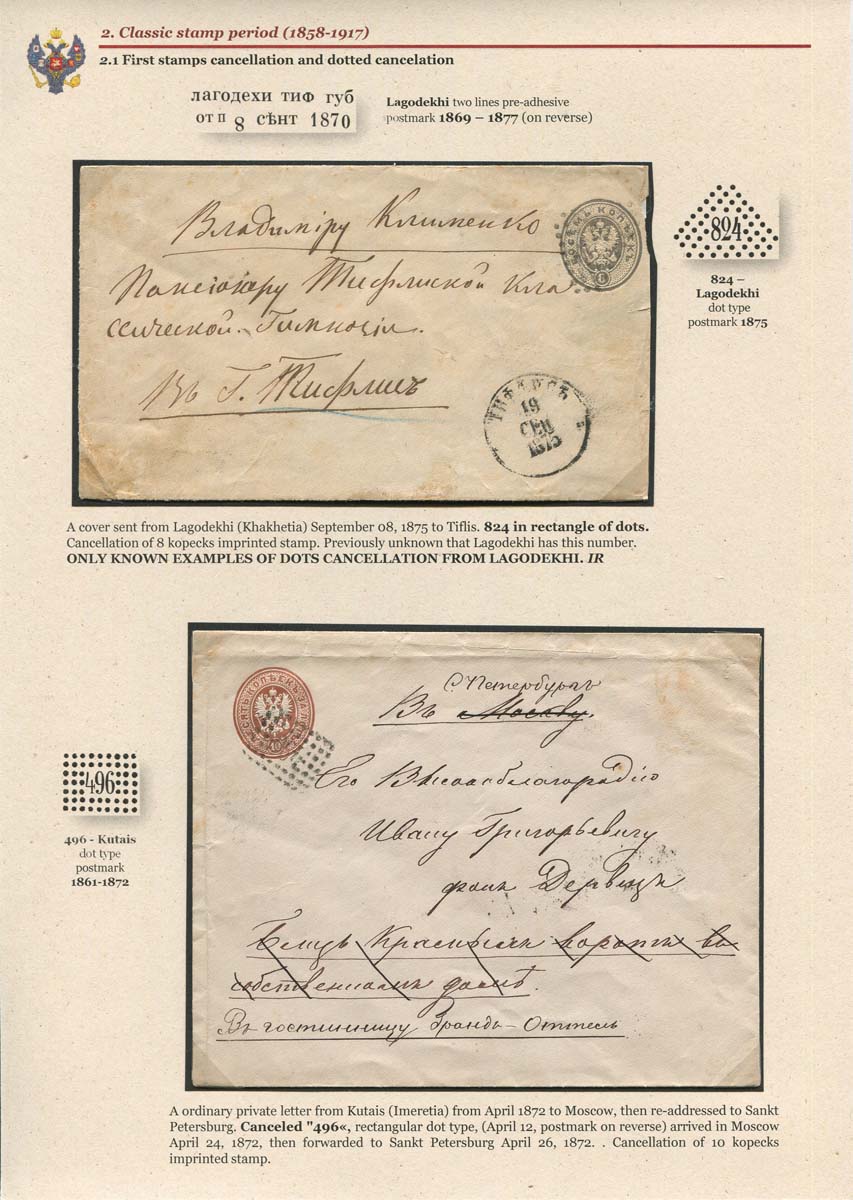 2. Classic stamp period (1858-1917)
2.1 First stamps cancellation and dotted cancelation
лагодехи тиф губ
от п 8 сѣнт 1870
Lagodekhi two lines pre-adhesive
postmark 1869 – 1877 (on reverse)
Владиміру Клименко
Пансіонеру Тифлиской Кла
ссической Гимназіи.
Въ Г. Тифлисъ
ВОСЕМЬ КОПѢЕКЪ
ТИФЛИСЪ
19
СЕН
1875
824
824 –
Lagodekhi
dot type
postmark 1875
A cover sent from Lagodekhi (Khakhetia) September 08, 1875 to Tiflis. 824 in rectangle of dots.
Cancellation of 8 kopecks imprinted stamp. Previously unknown that Lagodekhi has this number.
ONLY KNOWN EXAMPLES OF DOTS CANCELLATION FROM LAGODEKHI. IR
С. Петербургъ
Въ Москву.
Его Высокоблагородію
Ивану Григорьевичу
фонъ Дервизъ
Близь Красныхъ воротъ въ
собственномъ домѣ.
Въ гостинницу Грандъ-Оттель
10
496
496 - Kutais
dot type
postmark
1861-1872
A ordinary private letter from Kutais (Imeretia) from April 1872 to Moscow, then re-addressed to Sankt
Petersburg. Canceled "496«, rectangular dot type, (April 12, postmark on reverse) arrived in Moscow
April 24, 1872, then forwarded to Sankt Petersburg April 26, 1872. . Cancellation of 10 kopecks
imprinted stamp.